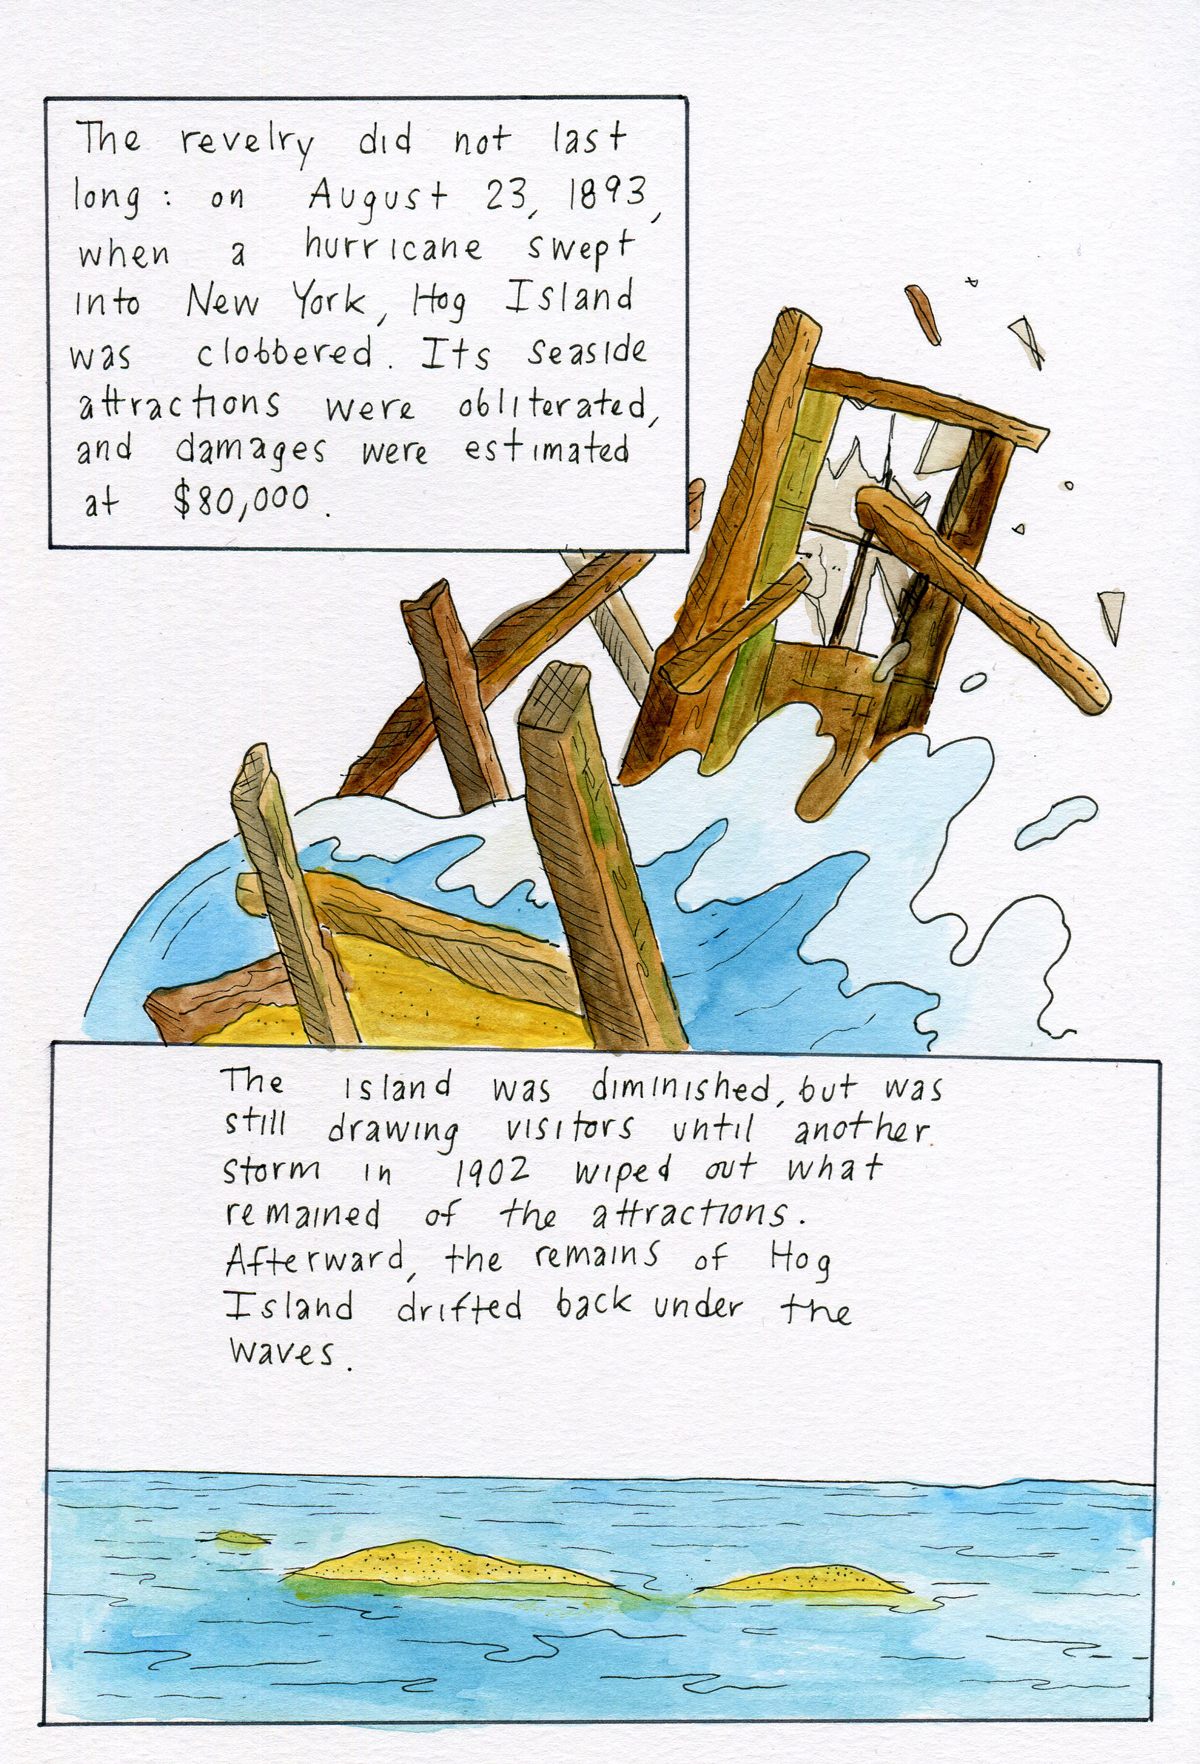 The revelry did not last
long: on August 23, 1893,
when a hurricane swept
into New York, Hog Island
was clobbered. Its seaside
attractions were obliterated,
and damages were estimated
at $80,000.
The island was diminished, but was
still drawing visitors until another
storm in 1902 wiped out what
remained of the attractions.
Afterward, the remains of Hog
Island drifted back under the
waves.